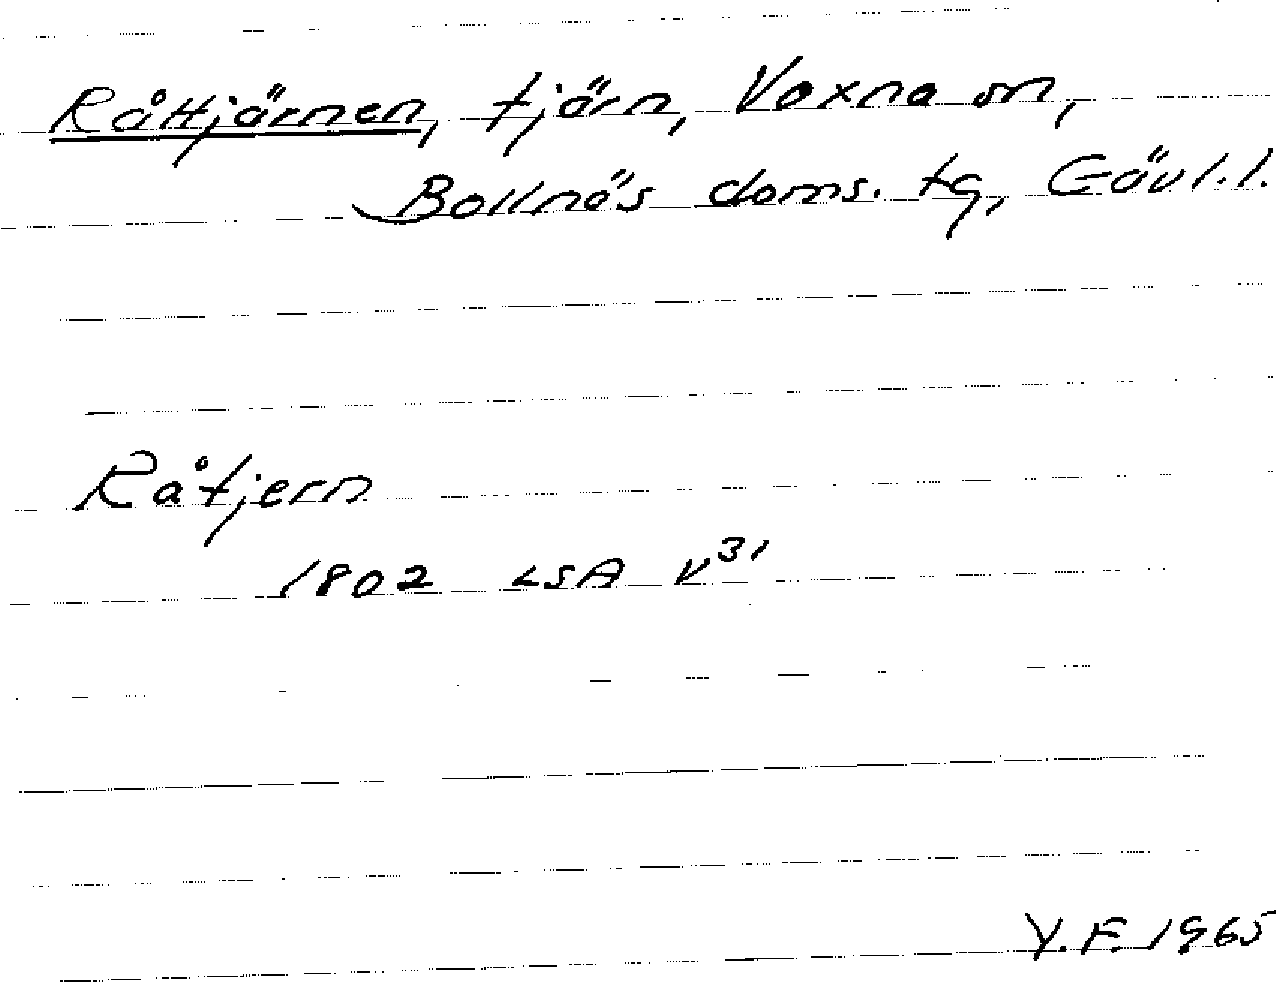 Råttjärnen, tjärn, Voxna sn,
Bollnäs doms. tg, Gävl.l.
Råtjern
1802 LSA V³¹
Y.F. 1965